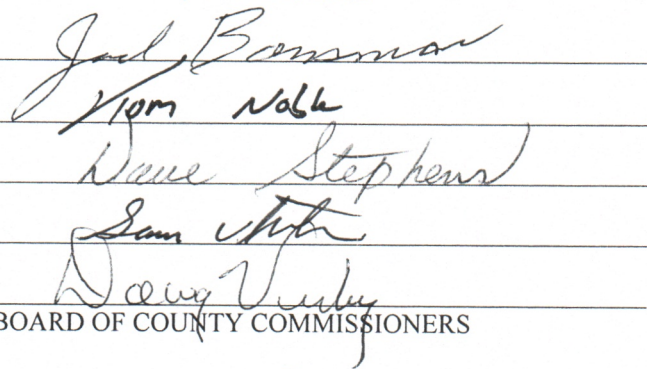 Joel Bousman
Tom Noble
Dave Stephens
Doug
BOARD OF COUNTY COMMISSIONERS